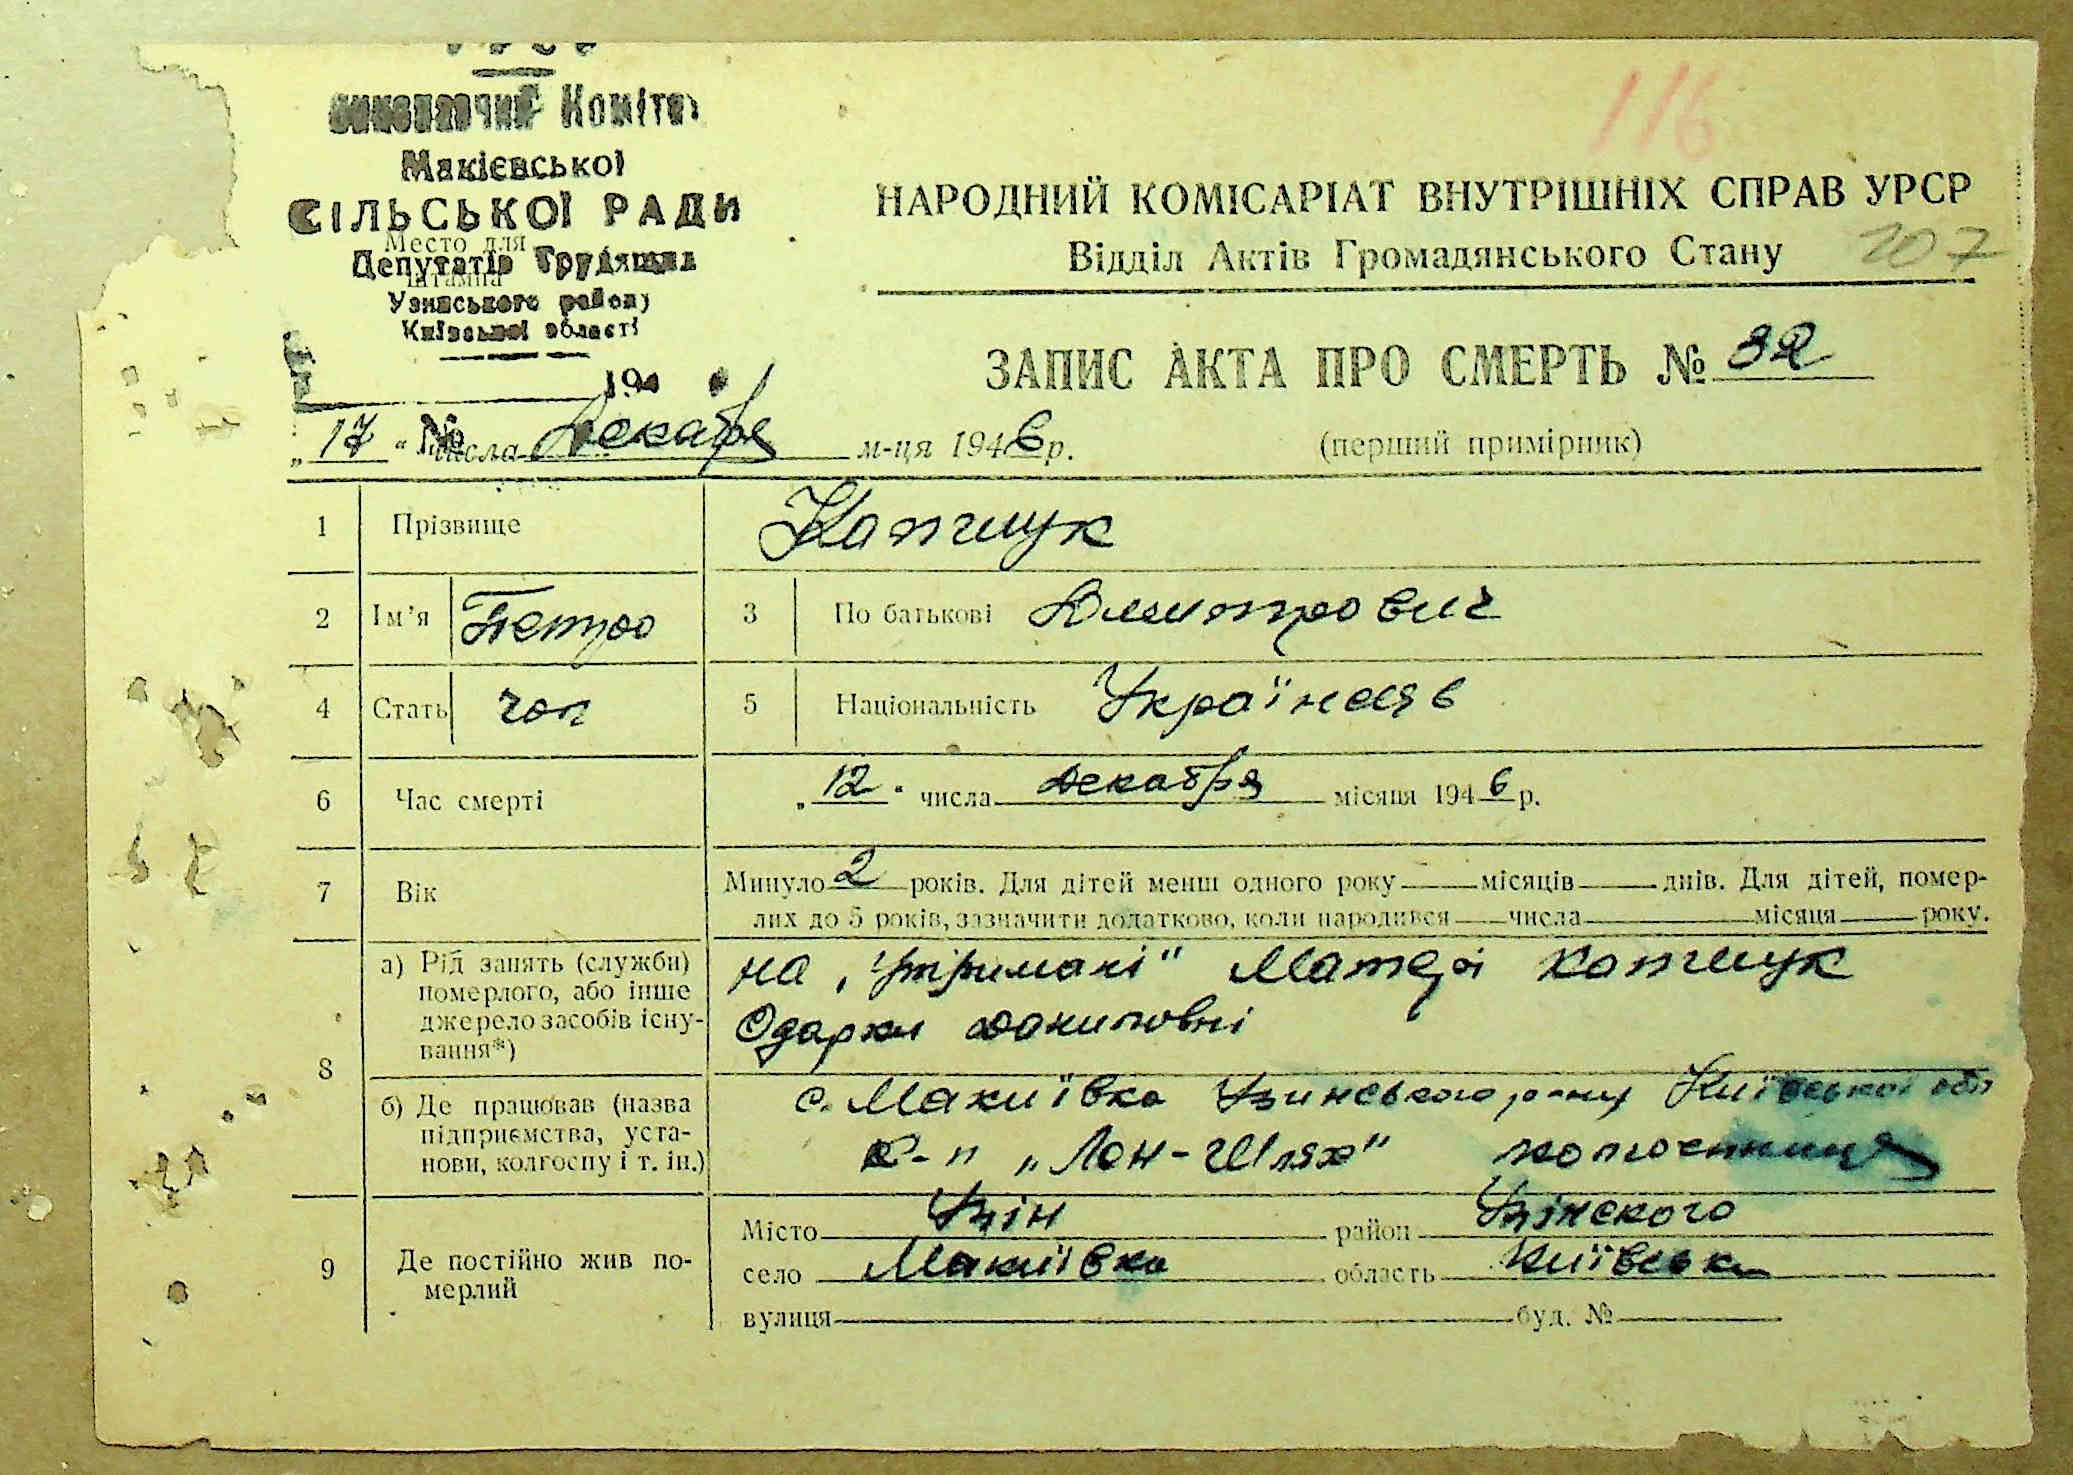 УРСР
Виконавчий Комітет
Макієвської
СІЛЬСЬКОЇ РАДИ
Место для
Депутатів Трудящих
штампа
Узинського району
Київської області
116
НАРОДНИЙ КОМІСАРІАТ ВНУТРІШНІХ СПРАВ УРСР
Відділ Актів Громадянського Стану
207
ЗАПИС АКТА ПРО СМЕРТЬ № 32
194
№
„17“ числа Декабря м-ця 1946 р.
(перший примірник)
1 Прізвище Капчмук
2 Ім’я Петро 3 По батькові Дмитрович
4 Стать чол 5 Національність Українець
6 Час смерті „12“ числа декабря місяця 1946 р.
7 Вік Минуло 2 років. Для дітей менш одного року місяців днів. Для дітей, помер-
лих до 5 років, зазначити додатково, коли народився числа місяця року.
8 а) Рід занять (служби)
померлого, або інше
джерело засобів існу-
вання*)
на „Утримані“ Матері
Одарки Даниловні
б) Де працював (назва
підприємства, уста-
нови, колгоспу і т. ін.)
с. Макиївка Узинського р-ну Київської обл
к-п „Лен-Шлях“ колгоспниця
9 Де постійно жив по-
мерлий
Місто Узін район Узінского
село Макиївка область Київська
вулиця буд. №